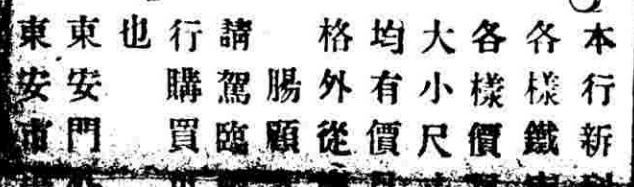 本行新
各樣鐵
各樣價
大小尺
均有價
格外從
賜顧
請駕臨
行購買
也
東安門
東安市